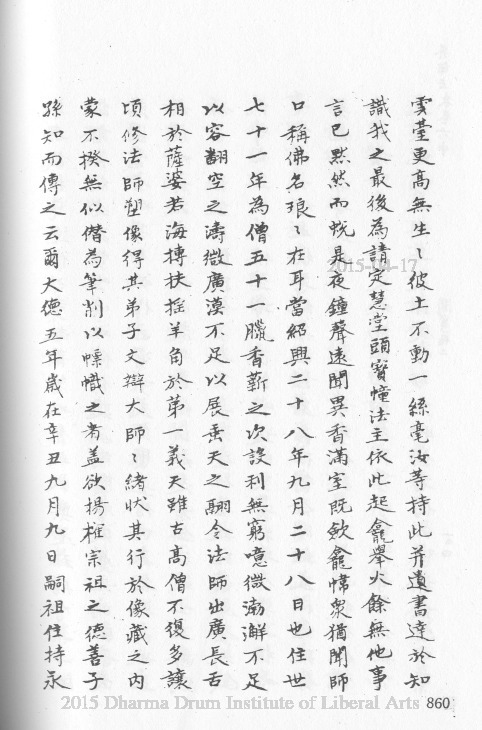 雲臺更高無生〻彼土不動一絲毫汝等持此并遺書達於知
識我之最後為請定慧堂頭寶幢法主依此起龕舉火餘無他事
言已黙然而蛻是夜鐘聲遠聞異香滿室既斂龕幃衆猶聞師
口稱佛名琅〻在耳當紹興二十八年九月二十八日也住世
七十一年為僧五十一臘香薪之次設利無窮噫微渤澥不足
以容翻空之濤微廣漠不足以展垂天之翮今法師出廣長舌
相於薩婆若海摶扶搖羊角於苐一義天雖古高僧不復多讓
頃修法師塑像得其弟子文辯大師〻緒狀其行於像藏之内
蒙不揆無似僭為筆削以幖幟之者盖欲揚搉宗祖之德善子
孫知而傳之云爾大德五年歲在辛丑九月九日嗣祖住持永
860
2015-04-17
2015 Dharma Drum Institute of Liberal Arts